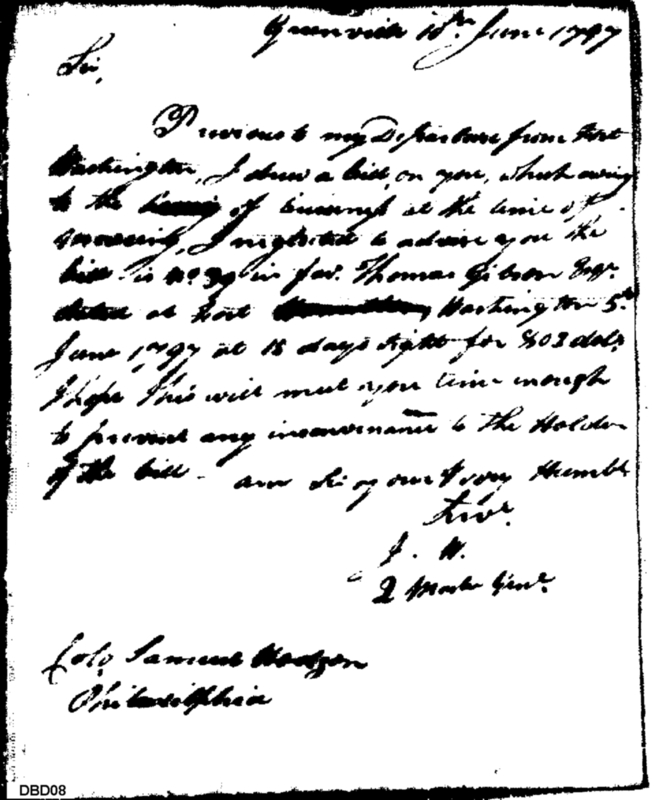 Greenville 10th June 1797
Sir,
Previous to my Departure from Fort
Washington, I drew a bill, on you, which owing
to the of business at the time of
mooving, I neglected to advise you the
bill is No. 39 in fav. Thomas Gibson Esqr.
dated at Fort Washington 5th
June 1797 at 15 days sight for 803 dols.
I hope this will meet you time enough
to prevent any inconvenance to the Holder
of the bill - am Sir your Very Humble
Servt.
J. W.
Q Mastr Genl.
Colo. Samuel Hodgson
Philadelphia
DBD08